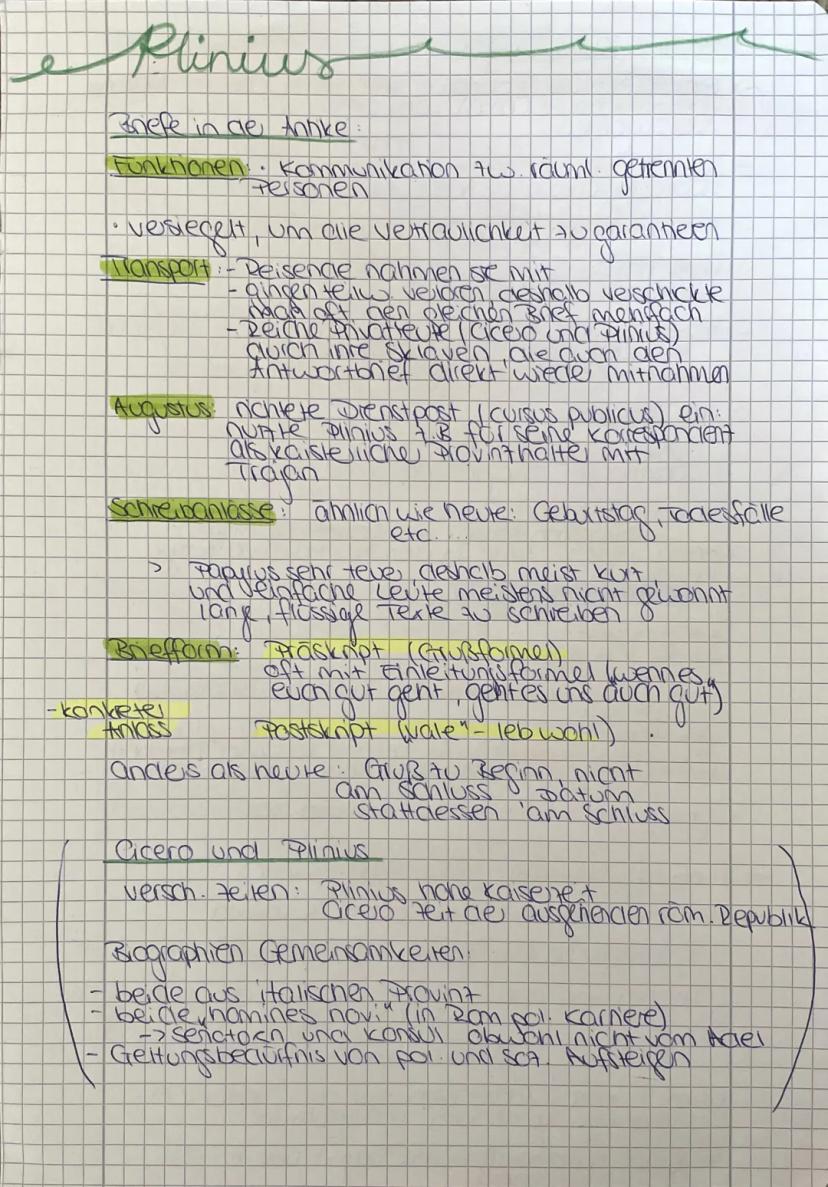 Plinius
Briefe in der Antike:
Funktionen: · Kommunikation zw. räuml. getrennten
Personen
· versiegelt, um die Vertraulichkeit zu garantieren
Transport: - Reisende nahmen sie mit
- gingen teilw. verloren, deshalb verschickte
man oft den gleichen Brief mehrfach
- Reiche Privatleute (Cicero und Plinius)
durch ihre Sklaven, die auch den
Antwortbrief direkt wieder mitnahmen
Augustus: richtete Dienstpost (cursus publicus) ein:
nutzte Plinius z.B für seine Korrespondenz
als kaiserliche Provinzhalter mit
Trajan
Schreibanlässe: ähnlich wie heute: Geburtstag, Todesfälle
etc....
> Papyrus sehr teuer, deshalb meist kurz
und einfache Leute meistens nicht gewohnt
lange, flüssige Texte zu schreiben
Briefform: Präskript (Grußformel)
oft mit Einleitungsformel („wenn es
euch gut geht, geht es uns auch gut“)
- konkreter
Anlass
Postskript („vale“ - leb wohl)
anders als heute: Gruß zu Beginn, nicht
am Schluss, Datum
stattdessen am Schluss
Cicero und Plinius
versch. Zeiten: Plinius hohe Kaiserzeit
Cicero Zeit der ausgehenden röm. Republik
Biographien Gemeinsamkeiten:
- beide aus italischen Provinz
- beide „homines novi“ (in Rom pol. Karriere)
-> Senatoren und Konsul obwohl nicht vom Adel
- Geltungsbedürfnis von pol. und soz. Aufsteigern